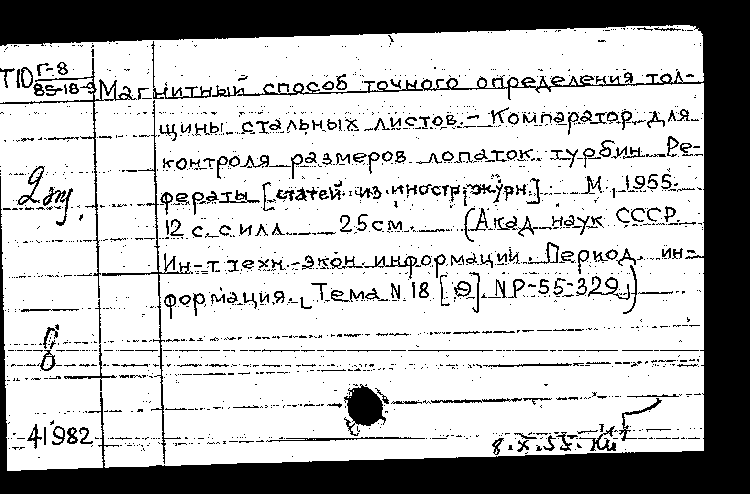 Г-8
TIO 85-18-9 Магнитный способ точного определения тол-
щины стальных листов.- Компаратор для
контроля размеров лопаток турбин. Ре-
2 экз. фераты [статей из иностр. журн.]. М., 1955.
12 с. с илл. 25 см. (Акад. наук СССР.
Ин-т техн.-экон. информации. Период. ин-
формация. Тема N 18 [Θ]. NP-55-329)
8
41982
8.X.55.